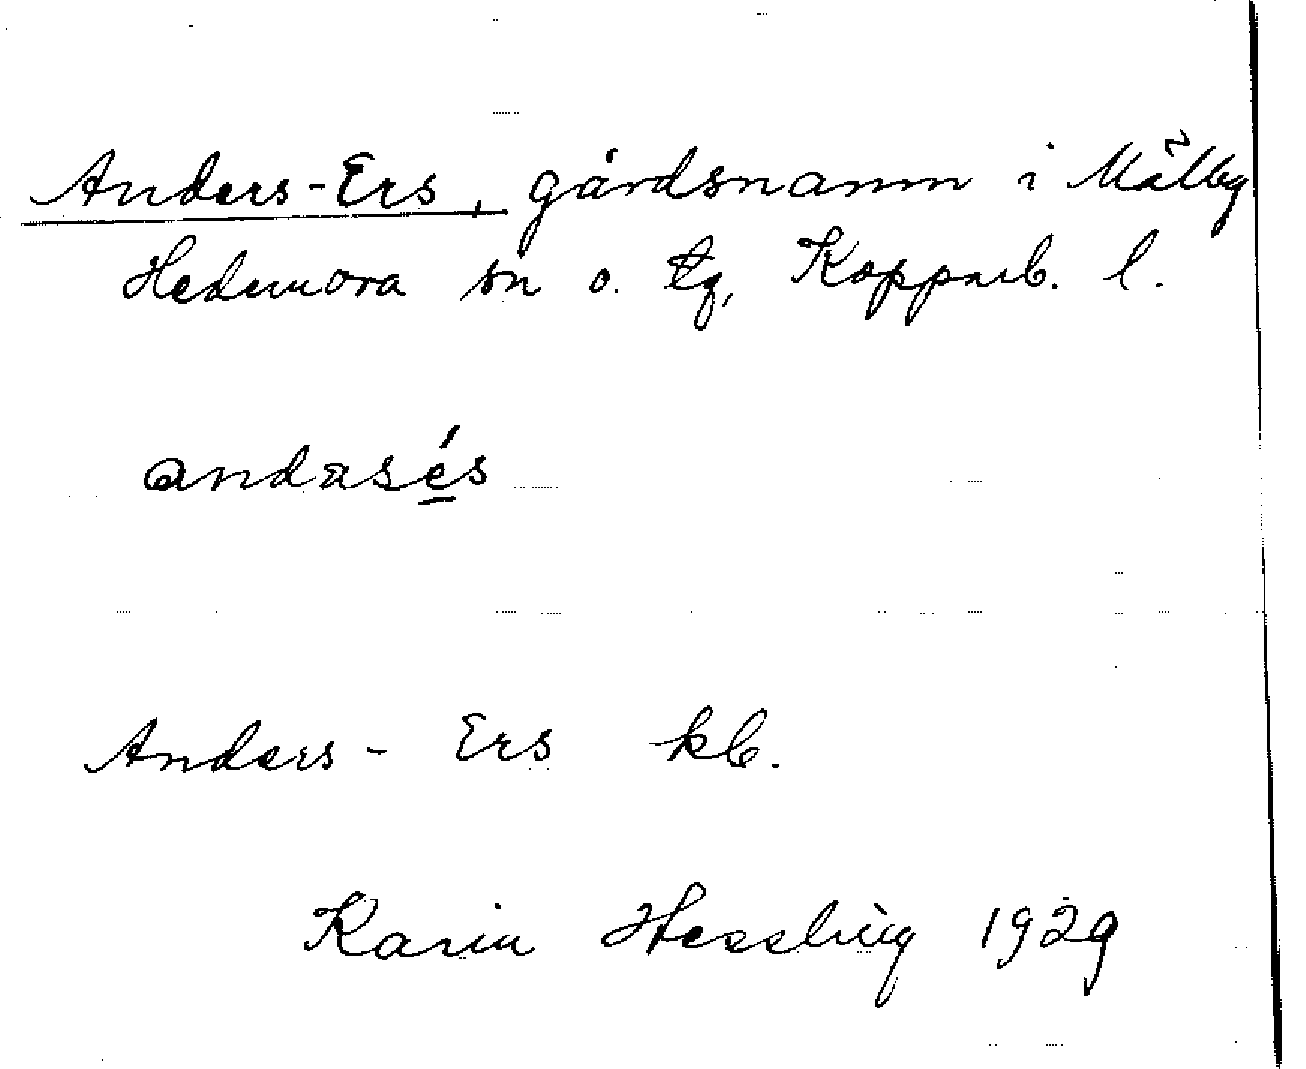 Anders-Ers, gårdsnamn i Målby
Hedemora sn o. tg, Kopparb. l.
andasés
Anders- Ers kb.
Karin Hessling 1929